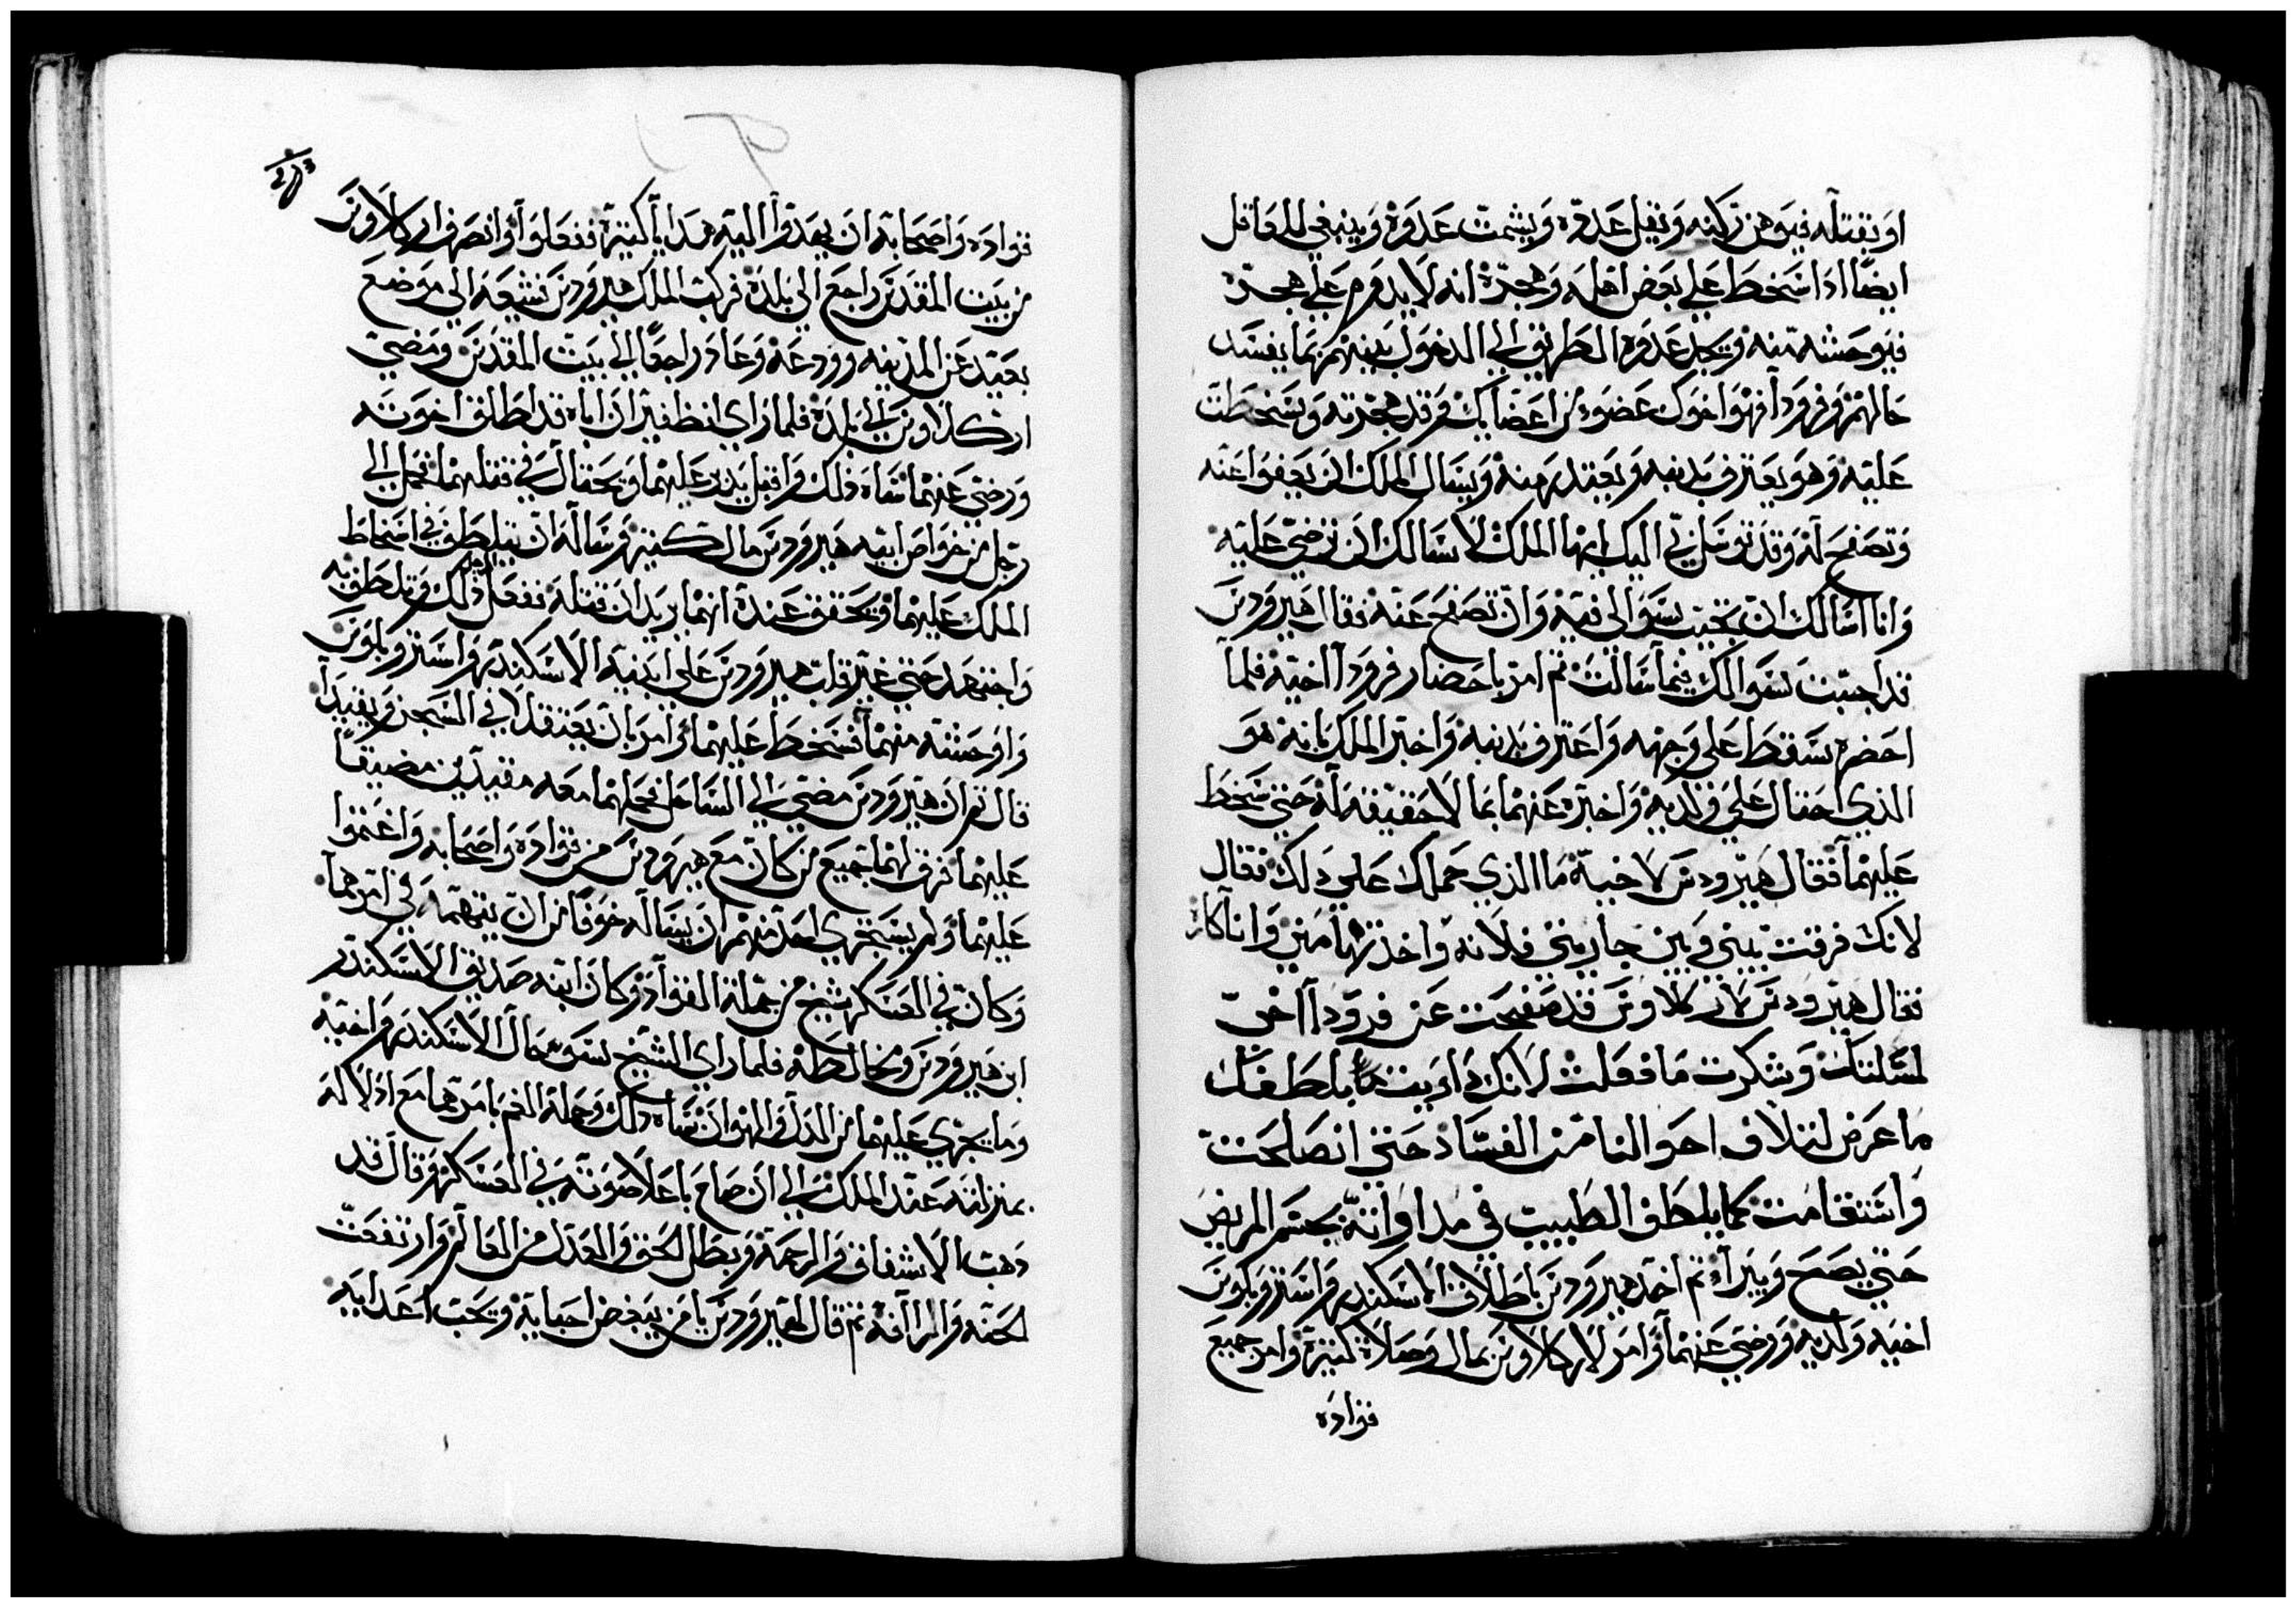 او يقتله فيوهن ركنه ويقل عدده ويشمت عدوه وينبغي للعاقل
ايضا اذا سخط علي بعض اهله وهجره انه لا يدوم علي هجره
فيوحشه منه ويجد عدوه الطريق الي الدخول بينهم بما يفسد
حالهم وفرودا فهو اخوك عضو من اعضايك وقد هجرته وسخطت
عليه وهو يعترف بذنبه ويعتذر منه ويسال الملك ان يعفوا عنه
وتصفح له وقد توسل بي اليك ايها الملك لاسالك ان ترضي عليه
وانا اسالك ان تجيب سوالي فيه وان تصفح عنه فقال هيرودس
قد اجبت سوالك فيما سالت ثم امر باحضار فرودا اخيه فلما
احضر سقط علي وجهه واعترف بذنبه واخبر الملك بانه هو
الذي احتال علي ولديه واخبره عنهما بما لا حقيقة له حتي سخط
عليهما فقال هيرودس لاخيه ما الذي حملك علي ذلك فقال
لانك فرقت بيني وبين جاريتي فلانه واخذتها مني وانا كاره
فقال هيرودس لاركلاوس قد صفحت عن فرودا اخي
لمسلتك وشكرت ما فعلت لانك داويت بلطفك
ما عرض لتلاف احوالنا من الفساد حتي انصلحت
واستقامت كما يلطف الطبيب في مداواته بجسم المريض
حتي يصح ويبراء ثم امر هيرودس باطلاق الاسكندر وارستروبلوس
اخيه ولديه ورضي عنهما وامر لاركلاوس بمال وصلاة كثيرة وامر جميع
قواده
قواده واصحابه ان يهدوا اليه هدايا كثيرة ففعلوا وانصرف اركلاوس
من بيت المقدس راجع الي بلده فركب الملك هيرودس شيعه الي موضع
بعيد عن المدينه وودعه وعاد راجعا الي بيت المقدس ومضي
اركلاوس الي بلده فلما راي انظفير ان اباه قد اطلق اخوته
ورضي عنهما ساه ذلك واقبل يدبر عليهما ويحتال في قتلهما فحمل الي
رجل من خواص ابيه هيرودس مال كثير وساله ان يتلطف في اسخاط
الملك عليهما ويحقق عنده انهما يريدان قتله ففعل الرجل ذلك وتلطف به
واجتهد حتي غير قلب هيرودس علي ابنيه الاسكندر وارستروبلوس
واوحشه منهما فسخط عليهما وامر بان يعتقلا في السجن ويقيدا
قال ثم ان هيرودس مضي الي الساحل فحملهما معه مقيدين مضيقا
عليهما فرق لهما جميع من كان مع هيرودس من قواده واصحابه واغتموا
عليهما ولم يستجري احد منهم ان يساله خوفا من ان يتهمه في امرهما
وكان في العسكر شيخ من جملة القواد وكان ابنه صديق الاسكندر
ابن هيرودس ويخالطه فلما راي الشيخ سو حال الاسكندر واخيه
وما يجري عليهما من الذل والهوان ساه ذلك وحمله الغم بامرهما مع ادلاله
بمنزلته عند الملك الي ان صاح باعلا صوته في العسكر وقال قد
ذهب الاشفاق والرحمة وبطل الحق والعدل من العالم وارتفعت
المحنه والراافه ثم قال لهيرودس يا من يبغض احبايه ويحب اعدايه